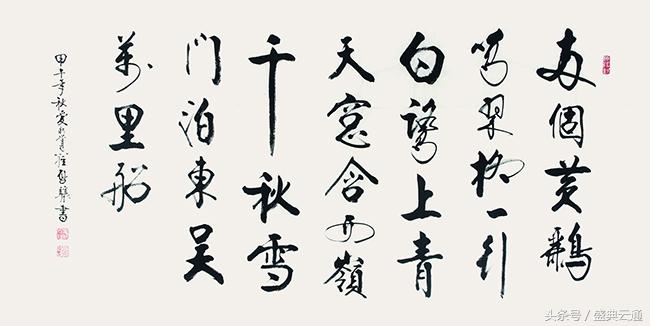 两個黄鸝
鳴翠柳一行
白鷺上青
天窓含西嶺
千秋雪
門泊東吴
萬里船
甲午年秋愛新覺羅啓驤書
头条号 / 盛典云通